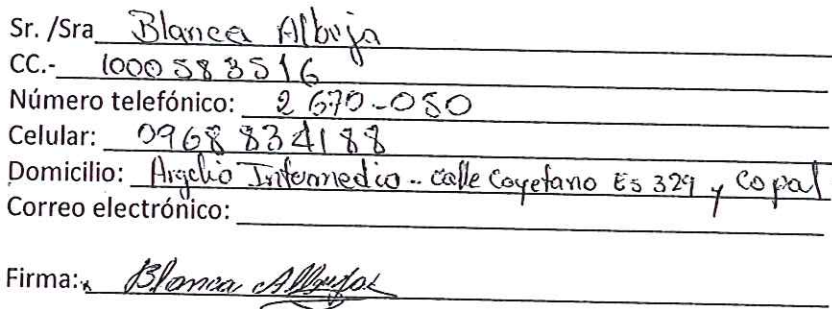 Sr. /Sra Blanca Albuja
CC.- 1000583516
Número telefónico: 2 670-050
Celular: 0968834188
Domicilio: Argelia Intermedia - calle Cayetano E5 329 y Copal
Correo electrónico:
Firma: Blanca Albuja